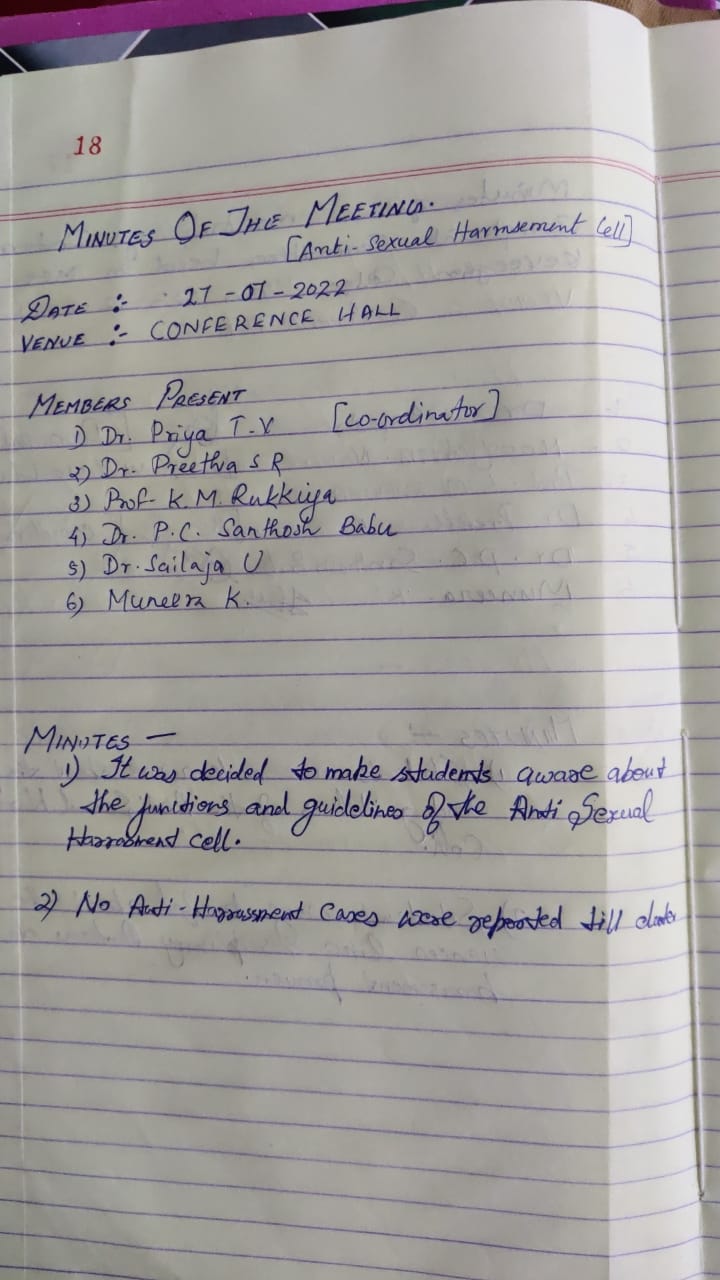 18
MINUTES OF THE MEETING.
[Anti-Sexual Harrasement Cell]
DATE :- 27-07-2022
VENUE :- CONFERENCE HALL
MEMBERS PRESENT
1) Dr. Priya T.V [co-ordinator]
2) Dr. Preetha S R
3) Prof. K.M. Rukkiya
4) Dr. P.C. Santhosh Babu
5) Dr. Sailaja U
6) Muneera K.
MINUTES —
1) It was decided to make students aware about
the functions and guidelines of the Anti Sexual
Harrasment cell.
2) No Anti-Harrassment Cases were reported till date